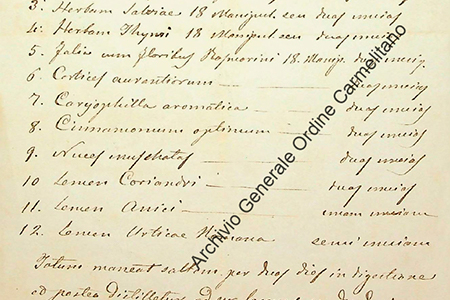 3. Herbam Salviae 18 Manipul. seu duas uncias
4. Herbam Thymi 18 Manipul. seu duas uncias
5. Folia cum floribus Rosmarini 18. Manip. duas uncias
6. Cortices aurantiorum duas uncias
7. Caryophilla aromatica duas uncias
8. Cinnamomum optimum duas uncias
9. Nuces muschatas duas uncias
10 Semen Coriandri duas uncias
11. Semen Anici unam unciam
12. Semen Urticae Romana semi unciam
Totum maneat per duos dies in digestione
et postea
Archivio Generale Ordine Carmelitano